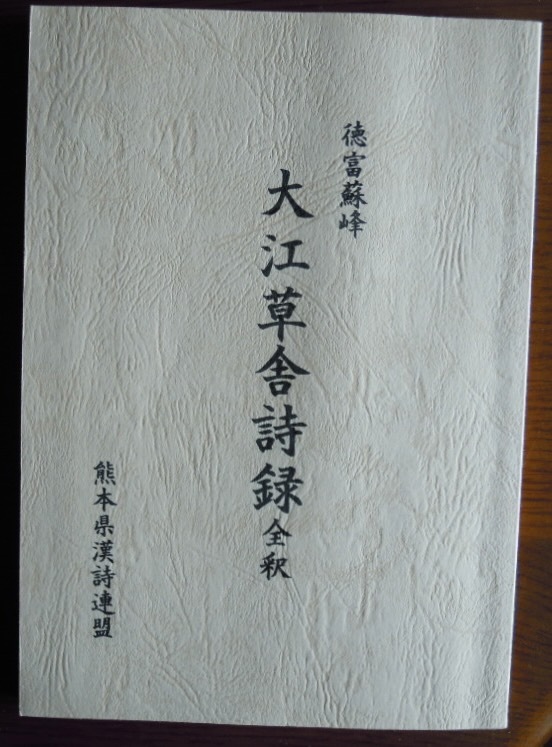 徳富蘇峰
大江草舎詩録全釈
熊本県漢詩連盟